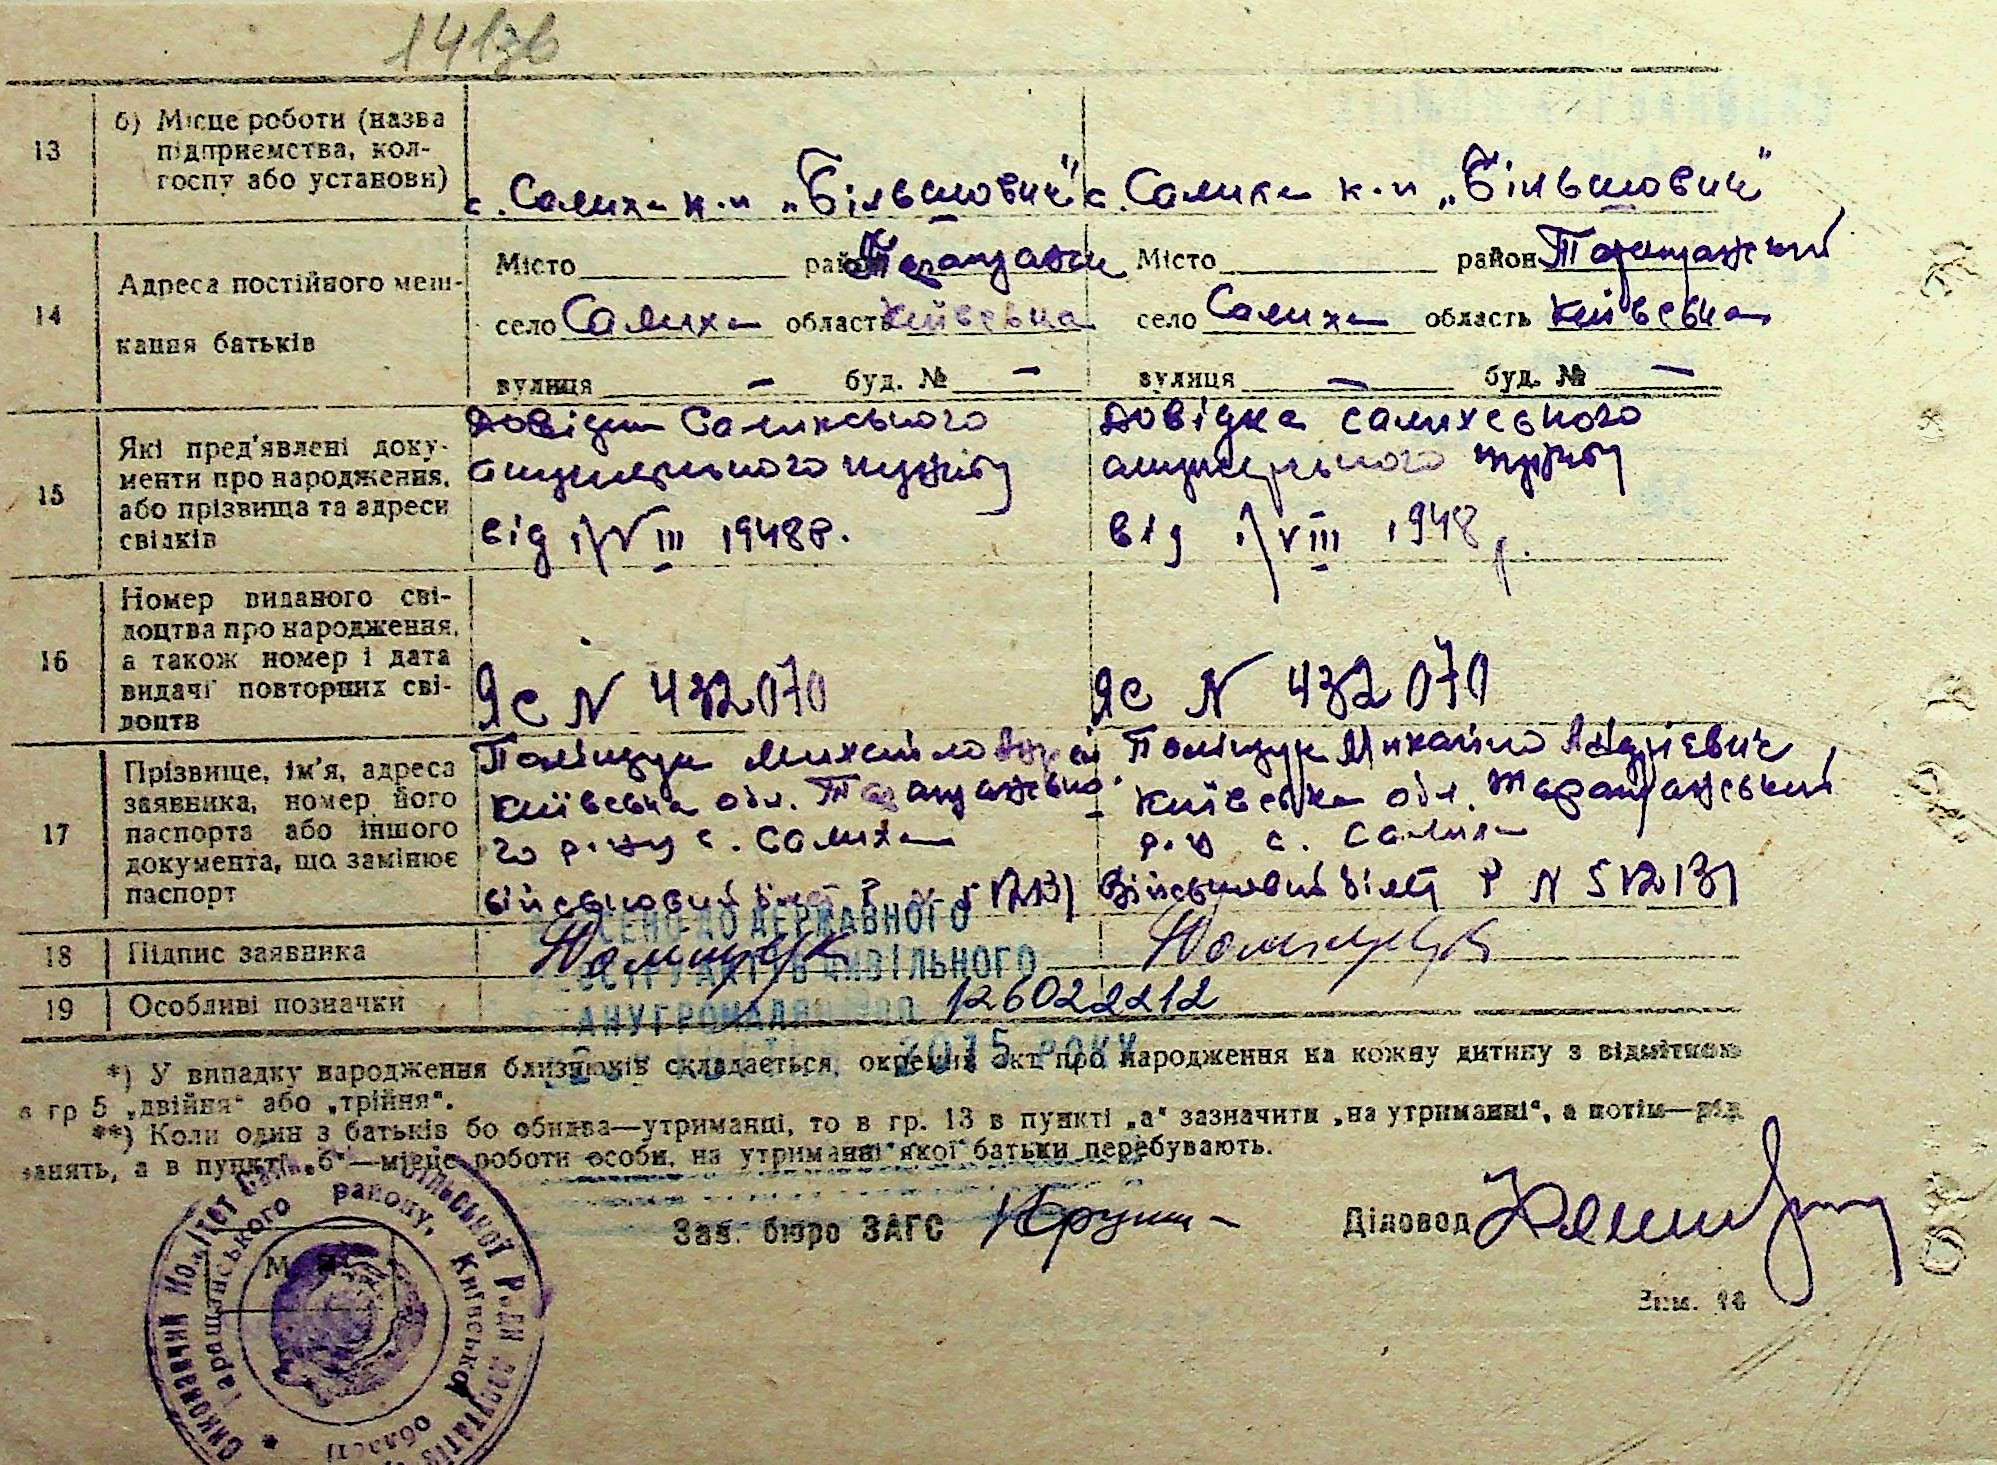 141зв
13
б) Місце роботи (назва
підприємства, кол-
госпу або установи)
с. Салиха к-п „Більшовик"
с. Салиха к-п „Більшовик"
14
Адреса постійного меш-
кання батьків
Місто район Таращански
село Салиха область Київська
вулиця — буд. № —
Місто район Таращанський
село Салиха область Київська
вулиця — буд. № —
15
Які пред'явлені доку-
менти про народження,
або прізвища та адреси
свідків
Довідка Салихського
акушерського пункту
від 1/VIII 1948 р.
Довідка салихського
акушерського пункту
від 1/VIII 1948 р.
16
Номер виданого сві-
доцтва про народження,
а також номер і дата
видачі повторних сві-
доцтв
ЯС N 432070
ЯС N 432070
17
Прізвище, ім'я, адреса
заявника, номер його
паспорта або іншого
документа, що замінює
паспорт
Поліщук Михайло Андрій
Київська обл. Таращансько-
го р-ну с. Салиха
військовий білет Р N 512131
Поліщук Михайло Андрієвич
Київська обл. Таращанський
р-н с. Салиха
Військовий білет Р N 512131
18
Підпис заявника
Поліщук
Поліщук
19
Особливі позначки
ВНЕСЕНО ДО ДЕРЖАВНОГО
РЕЄСТРУ АКТІВ ЦИВІЛЬНОГО
СТАНУ ГРОМАДЯН 126022212
2015 РОКУ
*) У випадку народження близнюків складається, окремий акт про народження на кожну дитину з відміткою
в гр 5 „двійня" або „трійня".
**) Коли один з батьків бо обидва—утриманці, то в гр. 13 в пункті „а" зазначити „на утриманні", а потім—рід
занять, а в пункті „б"—місце роботи особи, на утриманні якої батьки перебувають.
Зав. бюро ЗАГС
Діловод
Зам.
М.
Виконавчий Комітет сільської Ради депутатів
Таращанського району, Київської області